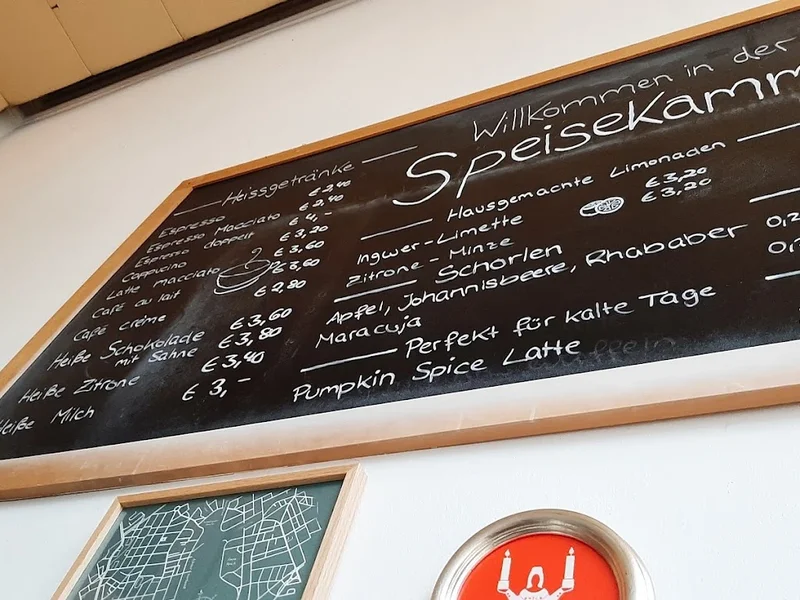 Willkommen in der
Speisekamm
Heissgetränke
Espresso € 2,40
Espresso Macciato € 2,40
Espresso doppelt € 4,-
Cappucino € 3,20
Latte macciato € 3,60
Café au lait € 3,60
Café crème € 2,80
Heiße Schokolade € 3,60
mit Sahne € 3,80
Heiße Zitrone € 3,40
Heiße Milch € 3,-
Hausgemachte Limonaden
Ingwer-Limette € 3,20
Zitrone - Minze € 3,20
Schorlen
Apfel, Johannisbeere, Rhababer
Maracuja
Perfekt für kalte Tage
Pumpkin Spice Latte